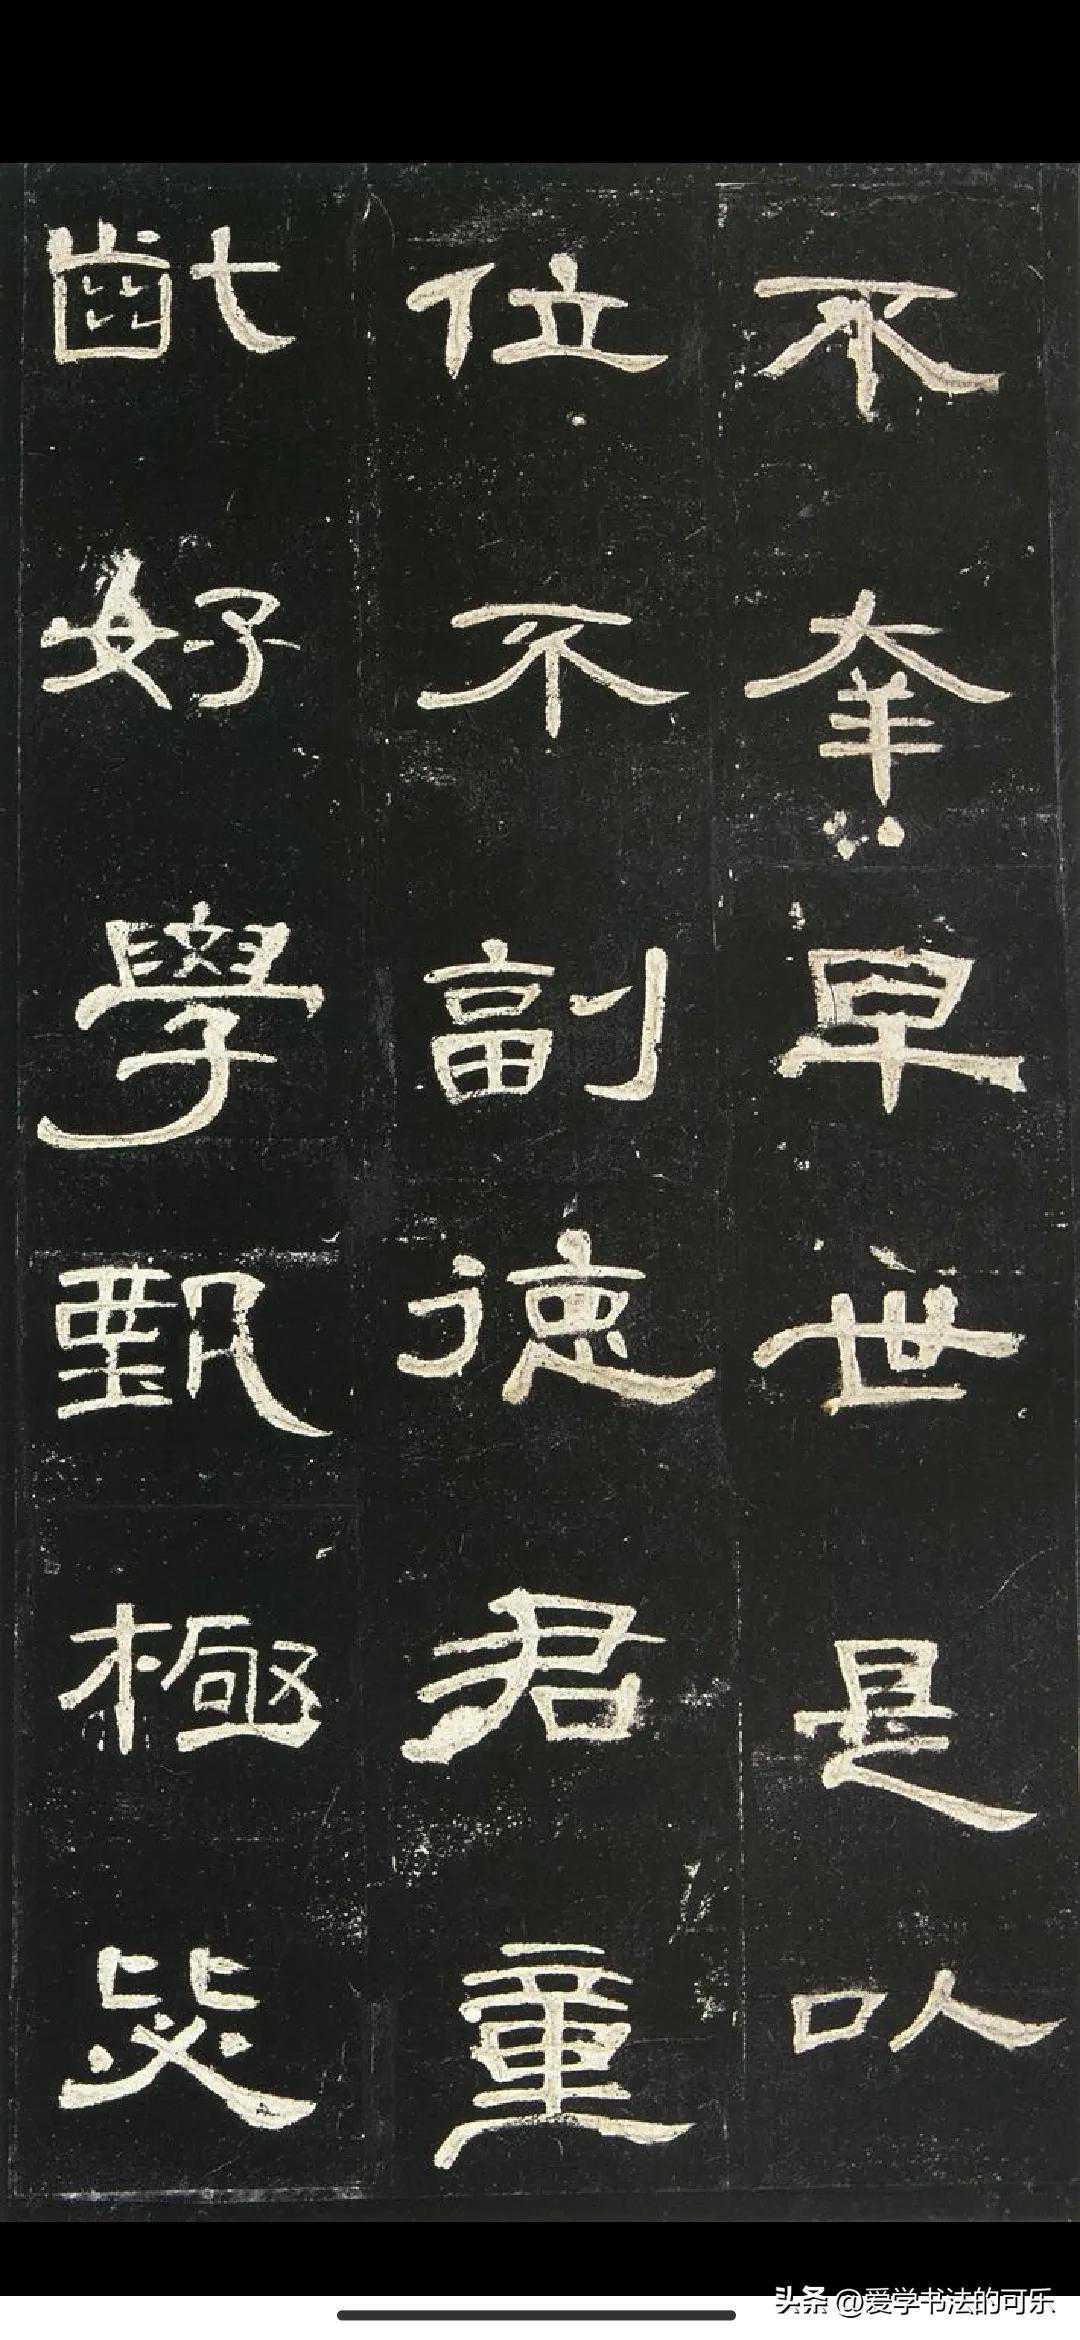 不幸早世是以
位不副德君童
齔好學甄極毖
头条 @爱学书法的可乐